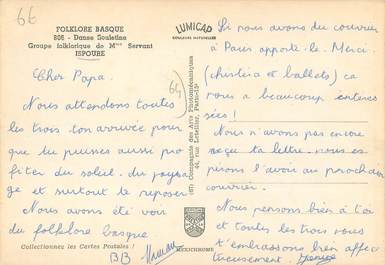 66
FOLKLORE BASQUE
806 - Danse Souletine
Groupe folklorique de Mme Servant
ISPOURE
LUMICAP
COULEURS NATURELLES
Cher Papa.
64
Nous attendons toutes
les trois ton arrivée pour
que tu puisses aussi pro
fiter du soleil. du paysa
ge et surtout te reposer
Nous avons été voir
du folklore basque
Collectionnez les Cartes Postales !
BB
Maman
Compagnie des Arts Photomécaniques
44, rue Letellier, Paris-15e
MEXICHROME
Si nous avons du courrier
à Paris apporte-le. Merci
ballets) ça
nous a beaucoup interes
sées !
Nous n'avons pas encore
reçu ta lettre. nous es
pérons l'avoir au prochain
courrier.
Nous pensons bien à toi
et toutes les trois nous
t'embrassons bien affec
tueusement.